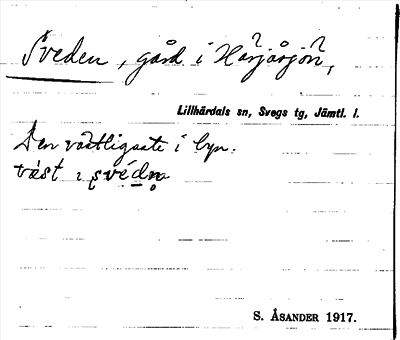 Sveden, gård i Härjåsjön,
Lillhärdals sn, Svegs tg, Jämtl. l.
Den västligaste i byn.
väst i
S. ÅSANDER 1917.